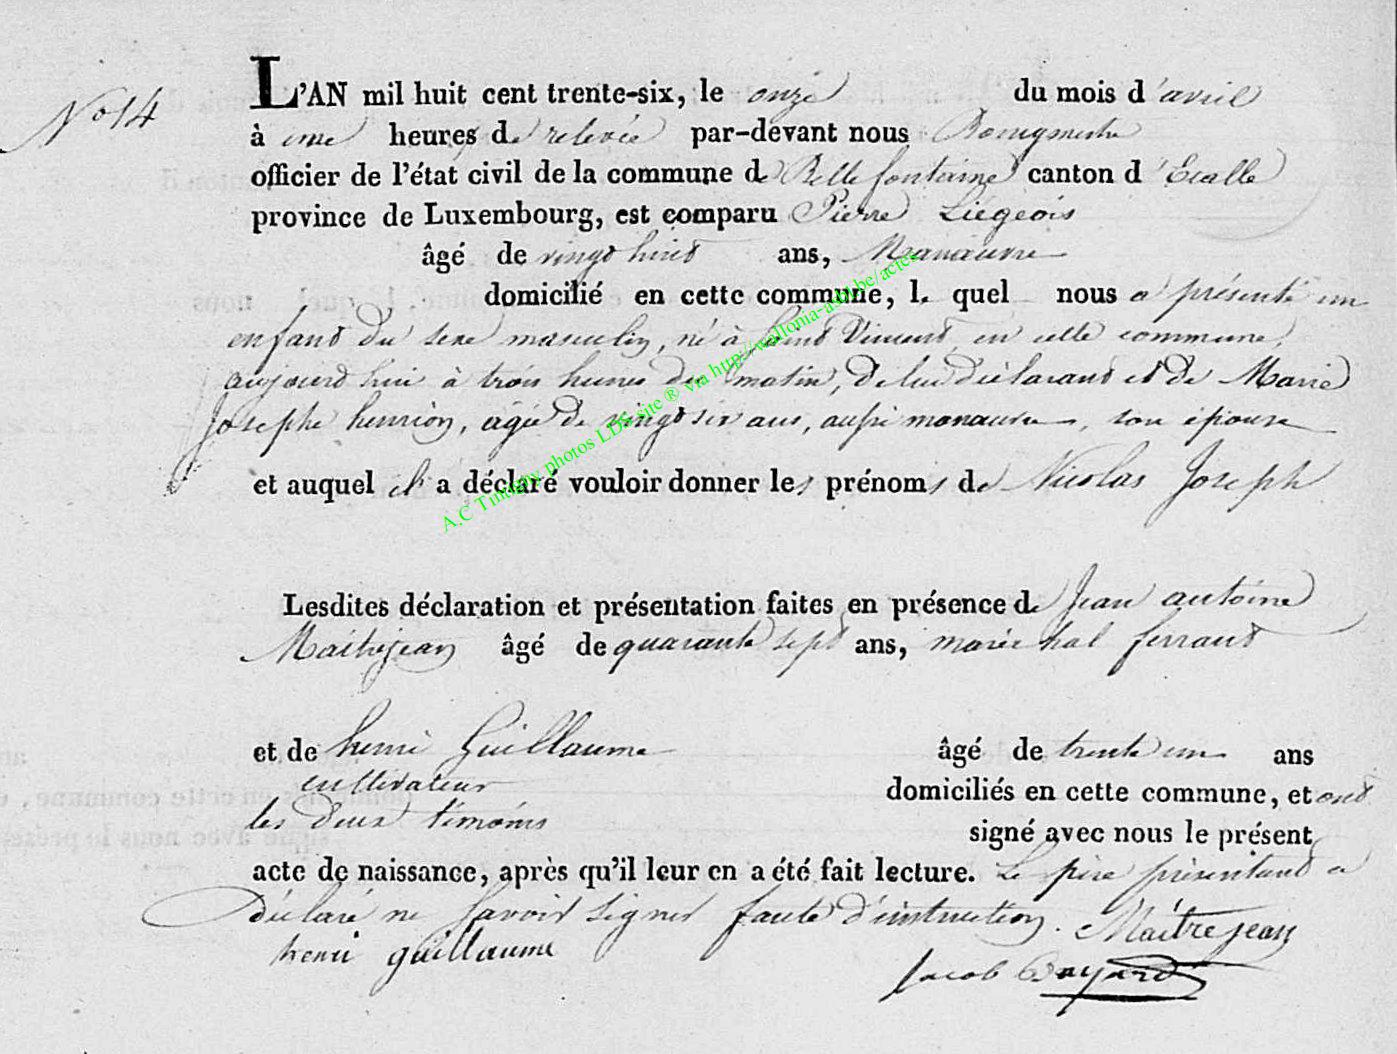 N° 14
L'AN mil huit cent trente-six, le onze du mois d'avril
à une heures de relevée par-devant nous Bourgmestre
officier de l'état civil de la commune de Bellefontaine canton d'Etalle
province de Luxembourg, est comparu Pierre Liégeois
âgé de vingt huit ans, Manœuvre
domicilié en cette commune, le quel nous a présenté un
enfant du sexe masculin, né à Saint Vincent, en cette commune,
aujourd'hui à trois heures du matin, de lui déclarant et de Marie
Josephe henrion, agée de vingt six ans, aussi manœuvre, son épouse
et auquel il a déclaré vouloir donner les prénoms de Nicolas Joseph
Lesdites déclaration et présentation faites en présence de Jean antoine
Maitrejean âgé de quarante sept ans, maréchal ferrant
et de henri Guillaume âgé de trente un ans
cultivateur domiciliés en cette commune, et ont
les deux témoins signé avec nous le présent
acte de naissance, après qu'il leur en a été fait lecture. Le père présentant a
déclaré ne savoir signer faute d'instruction. Maîtrejean
henri guillaume
Jacob Bayard
A.C Tintigny photos LDS site ® via http://wallonia-asbl.be/actes